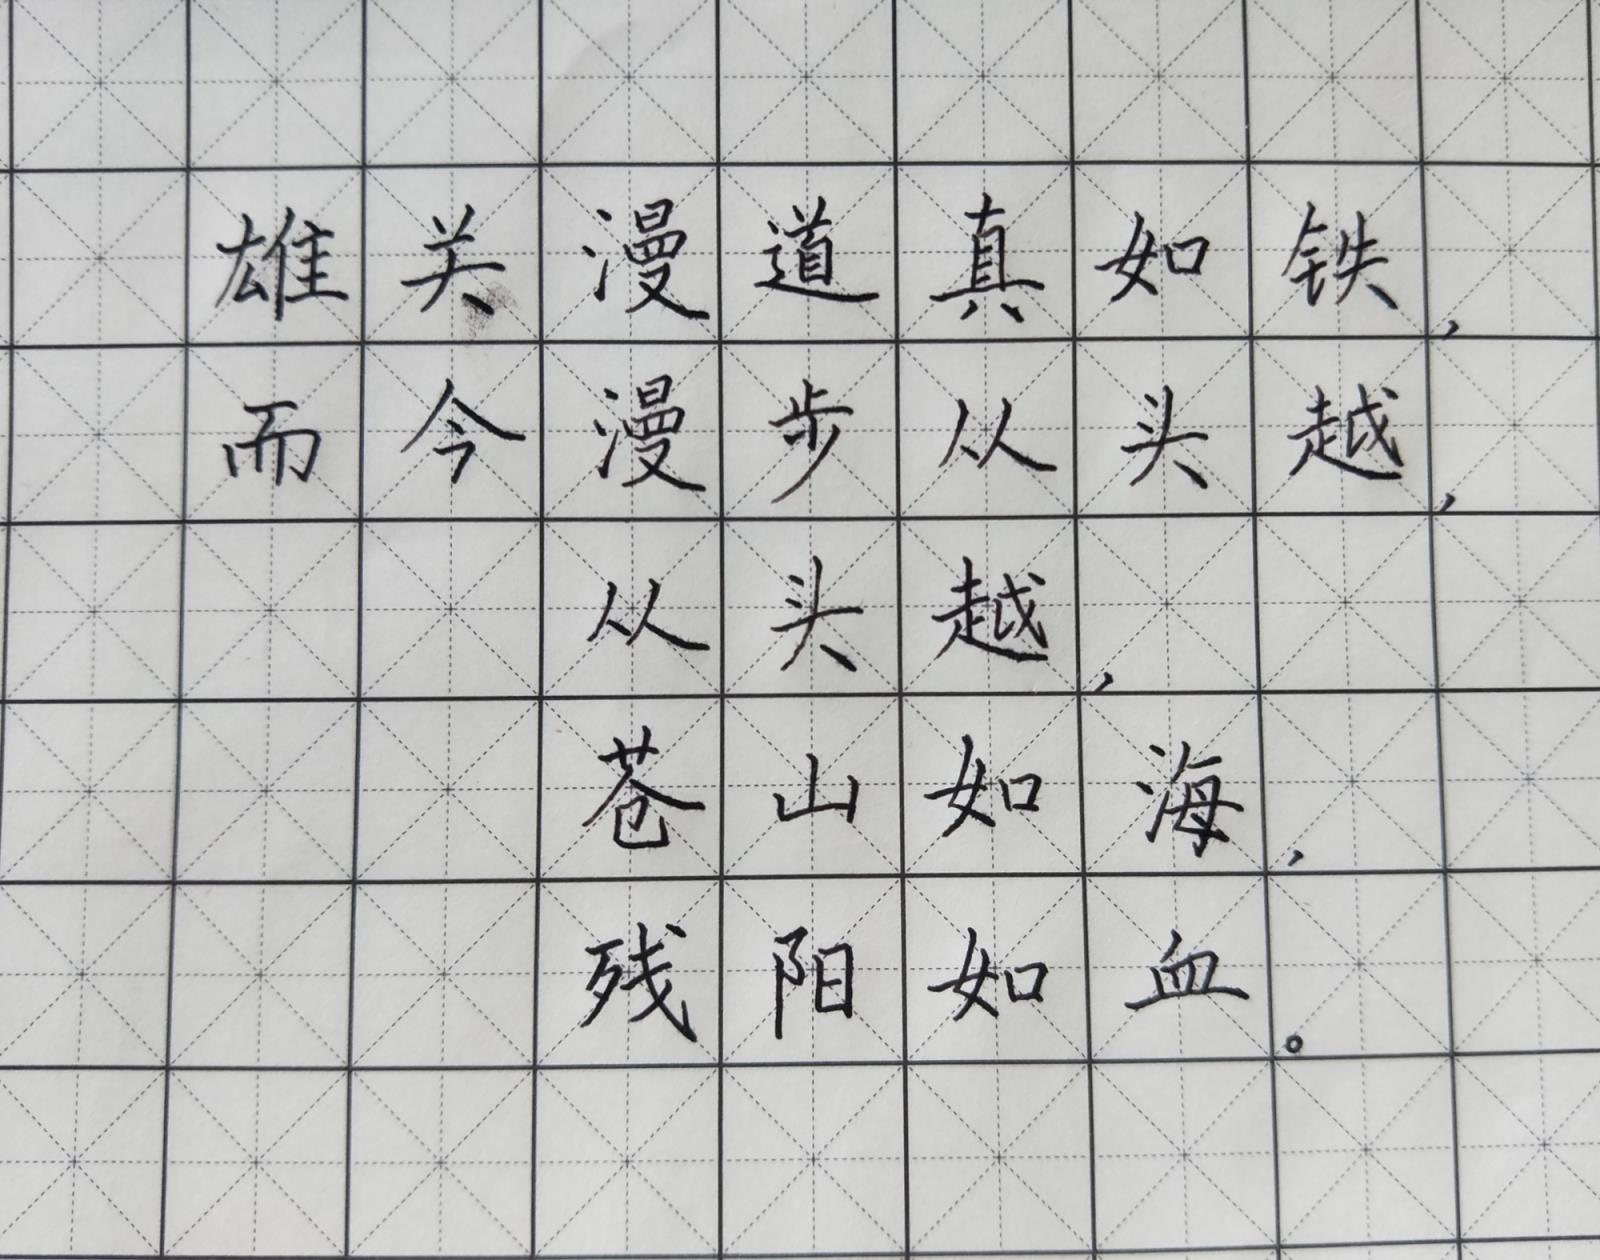 雄关漫道真如铁，
而今漫步从头越，
从头越，
苍山如海，
残阳如血。